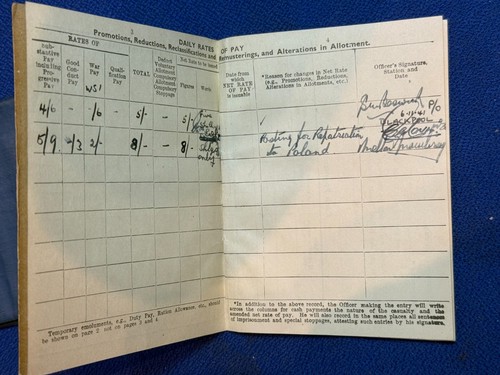 3
DAILY RATES OF PAY
4
Promotions, Reductions, Reclassifications and Remusterings, and Alterations in Allotment.
RATES OF
Substantive Pay including Progressive Pay
Good Conduct Pay
War Pay
Qualification Pay
TOTAL
Deduct Voluntary Allotment Compulsory Allotment Compulsory Stoppage
Net Rate to be issued
Figures
Words
Date from which NET RATE OF PAY is issuable
*Reason for changes in Net Rate (e.g., Promotions, Reductions, Alterations in Allotments, etc.)
Officer's Signature, Station and Date
4/6 - -/6 5/- - 5/- Five P/O
6-11-41
BLACKPOOL
5/9 -/3 2/- 8/- - 8/- only
for Repatriation
to Poland
Temporary emoluments, e.g., Duty Pay, Ration Allowance, etc., should
be shown on page 2 not on pages 3 and 4.
*In addition to the above record, the Officer making the entry will write
across the columns for cash payments the nature of the casualty and the
amended net rate of pay. He will also record in the same places all sentences
of imprisonment and special stoppages, attesting such entries by his signature.